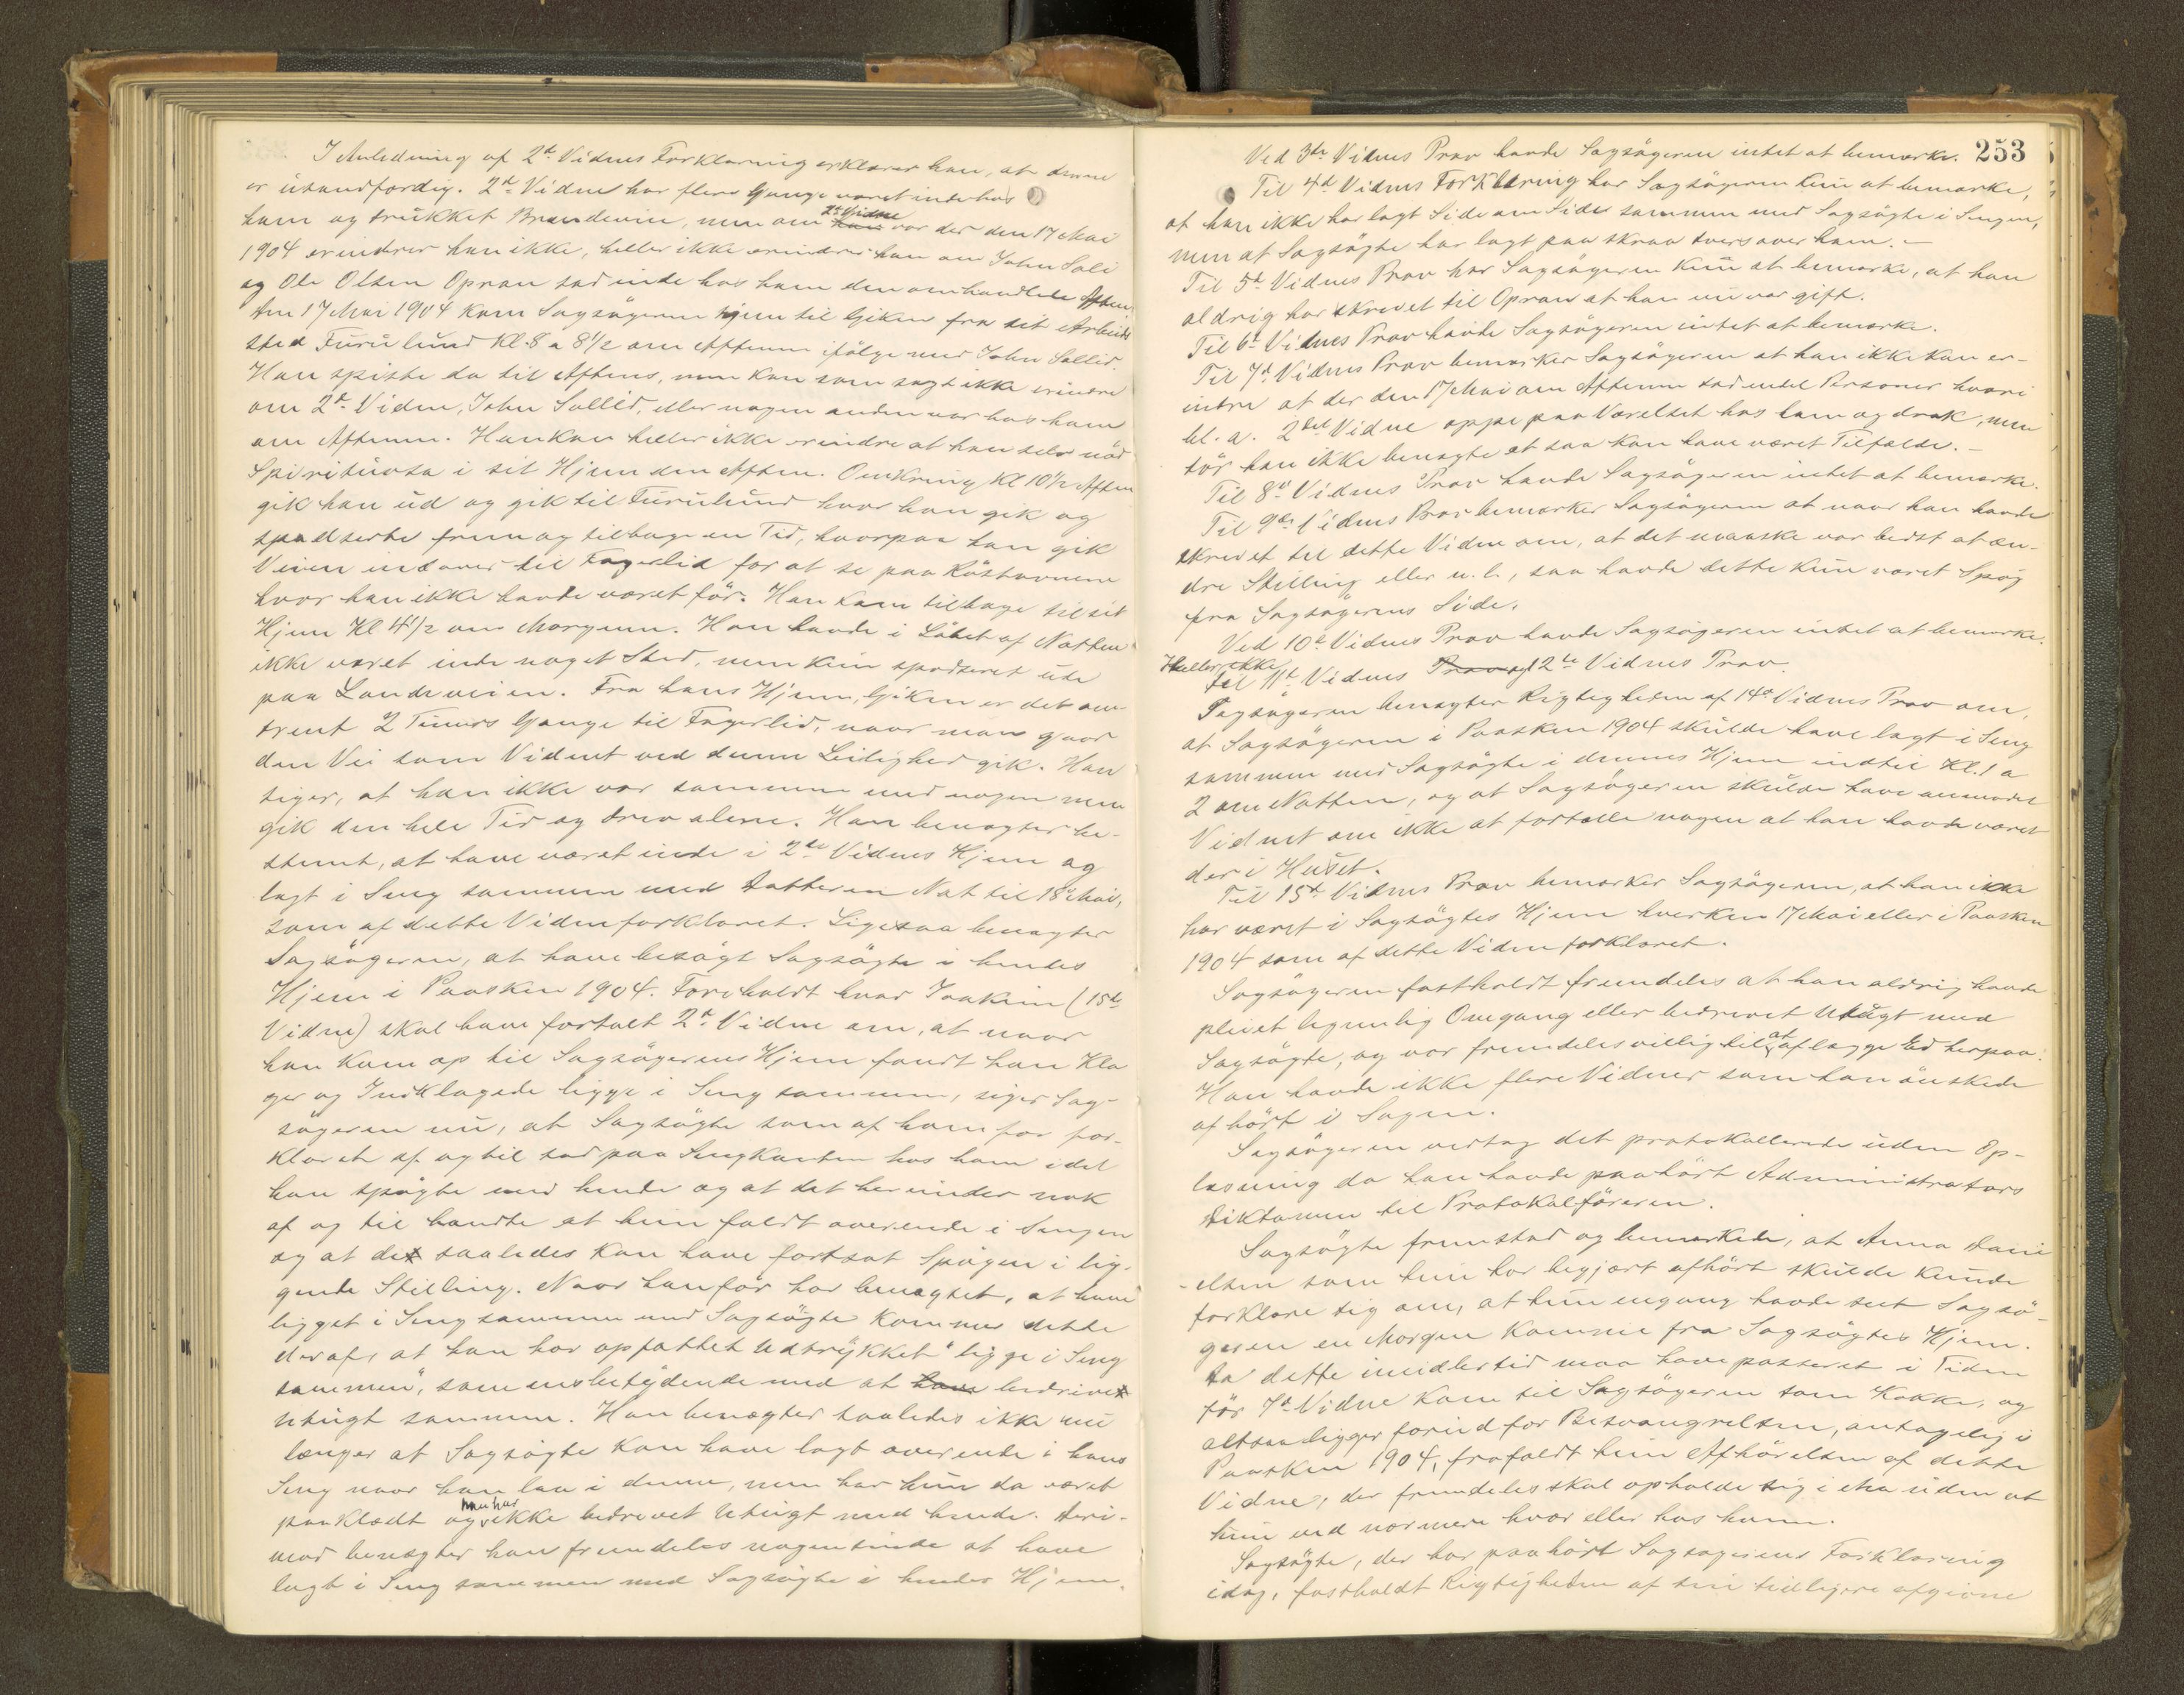 I Anledning af 2d Vidnes Forklaring erklærer han, at denne
er usandfærdig. 2d Vidne har flere Gange været inde hos
ham og drukket Brændevin, men om han 2d Vidne var der den 17 Mai
1904 erindrer han ikke, heller ikke erindrer han om John Soli
og Ole Olsen Opran sad inde hos ham den omhandlede Aften.
Den 17 Mai 1904 kom Sagsøgeren hjem til Giken fra sit Arbeids
sted Furulund Kl. 8 a 8 1/2 om Aftenen ifølge med John Sollid.
Han spiste da til Aftens, men kan som sagt ikke erindre
om 2d Vidne, John Sollid, eller nogen anden var hos ham
om Aftenen. Han kan heller ikke erindre at han selv nød
Spirituosa i sit Hjem den Aften. Omkring Kl 10 1/2 Aften
gik han ud og gik til Furulund hvor han gik og
spadserte frem og tilbage en Tid, hvorpaa han gik
Veien indover til Fagerlid for at se paa Røstovnene
hvor han ikke havde været før. Han kom tilbage til sit
Hjem Kl 4 1/2 om Morgenen. Han havde i Løbet af Natten
ikke været inde noget Sted, men kun spadseret ude
paa Landeveien. Fra hans Hjem, Giken er det om-
trent 2 Timers Gange til Fagerlid, naar man gaar
den Vei som Vidnet ved denne Leilighed gik. Han
siger, at han ikke var sammen med nogen men
gik den hele Tid og drev alene. Han benægter be-
stemt, at have været inde i 2det Vidnes Hjem og
lagt i Seng sammen med Datteren Nat til 18de Mai,
som af dette Vidne forklaret. Ligesaa benægter
Sagsøgeren, at have besøgt Sagsøgte i hendes
Hjem i Paasken 1904. Foreholdt hvad Joakim (15de
Vidne) skal have fortalt 2d Vidne om, at naar
han kom op til Sagsøgerens Hjem fandt han Kla
ger og Indklagede ligge i Seng sammen, siger Sag-
søgeren nu, at Sagsøgte som af ham før for-
klaret af og til sad paa Sengkanten hos ham idet
han spøgte med hende og at det herunder nok
af og til hændte at hun faldt overende i Sengen
og at det saaledes kan have fortsat Spøgen i lig-
gende Stilling. Naar han før har benægtet, at have
ligget i Seng sammen med Sagsøgte kommer dette
deraf, at han har opfattet Udtrykket "ligge i Seng
sammen", som ensbetydende med at have bedrivet
Utugt sammen. Han benægter saaledes ikke nu
længer at Sagsøgte kan have lagt overende i hans
Seng naar han laa i denne, men har hun da været
paaklædt og han har ikke bedrevet Utugt med hende. Deri-
mod benægter han fremdeles nogensinde at have
lagt i Seng sammen med Sagsøgte i hendes Hjem.
253
Ved 3die Vidnes Prov havde Sagsøgeren intet at bemærke.
Til 4d Vidnes Forklaring har Sagsøgeren kun at bemærke,
at han ikke har lagt Side om Side sammen med Sagsøgte i Sengen,
men at Sagsøgte har lagt paa skraa tvers over ham. –
Til 5d Vidnes Prov har Sagsøgeren kun at bemærke, at han
aldrig har skrevet til Opran at han nu var gift.
Til 6d Vidnes Prov havde Sagsøgeren intet at bemærke.
Til 7d Vidnes Prov bemærker Sagsøgeren at han ikke kan er-
indre at der den 17 Mai om Aftenen sad endel Personer hvori
bl. a. 2det Vidne oppe paa Værelset hos ham og drak, men
tør han ikke benægte at saa kan have været Tilfælde. –
Til 8d Vidnes Prov havde Sagsøgeren intet at bemærke.
Til 9de Vidnes Prov bemærker Sagsøgeren at naar han havde
skrevet til dette Vidne om, at det maaske var bedst at æn-
dre Stilling eller n. l., saa havde dette kun været Spøg
fra Sagsøgerens Side.
Ved 10de Vidnes Prov havde Sagsøgeren intet at bemærke.
Heller ikke
til 11t Vidnes Prov og 12te Vidnes Prov.
Sagsøgeren benægter Rigtigheden af 14d Vidnes Prov om,
at Sagsøgeren i Paasken 1904 skulde have lagt i Seng
sammen med Sagsøgte i dennes Hjem indtil Kl. 1 a
2 om Natten, og at Sagsøgeren skulde have anmodet
Vidnet om ikke at fortælle nogen at han havde været
der i Huset.
Til 15d Vidnes Prov bemærker Sagsøgeren, at han ikke
har været i Sagsøgtes Hjem hverken 17 Mai eller i Paasken
1904 som af dette Vidne forklaret.
Sagsøgeren fastholdt fremdeles at han aldrig havde
pleiet legemlig Omgang eller bedrevet Utugt med
Sagsøgte, og var fremdeles villig til at aflægge Ed herpaa.
Han havde ikke flere Vidner som han ønskede
afhørt i Sagen.
Sagsøgeren vedtog det protokollerede uden Op-
læsning da han havde paahørt Administrators
Diktamen til Protokolføreren.
Sagsøgte fremstod og bemærkede, at Anna Dani
-elsen som hun har begjært afhørt skulde kunde
forklare sig om, at hun engang havde seet Sagsø-
geren en Morgen komme fra Sagsøgtes Hjem.
Da dette imidlertid maa have passeret i Tiden
før 7d Vidne kom til Sagsøgeren som Kokke, og
altsaa ligger forud for Besvangrelsen, antagelig i
Paasken 1904, frafaldt hun Afhørelsen af dette
Vidne, der fremdeles skal opholde sig i Mo uden at
hun ved nærmere hvor eller hos hvem.
Sagsøgte, der har paahørt Sagsøgerens Forklaring
idag, fastholdt Rigtigheden af sin tidligere afgivne